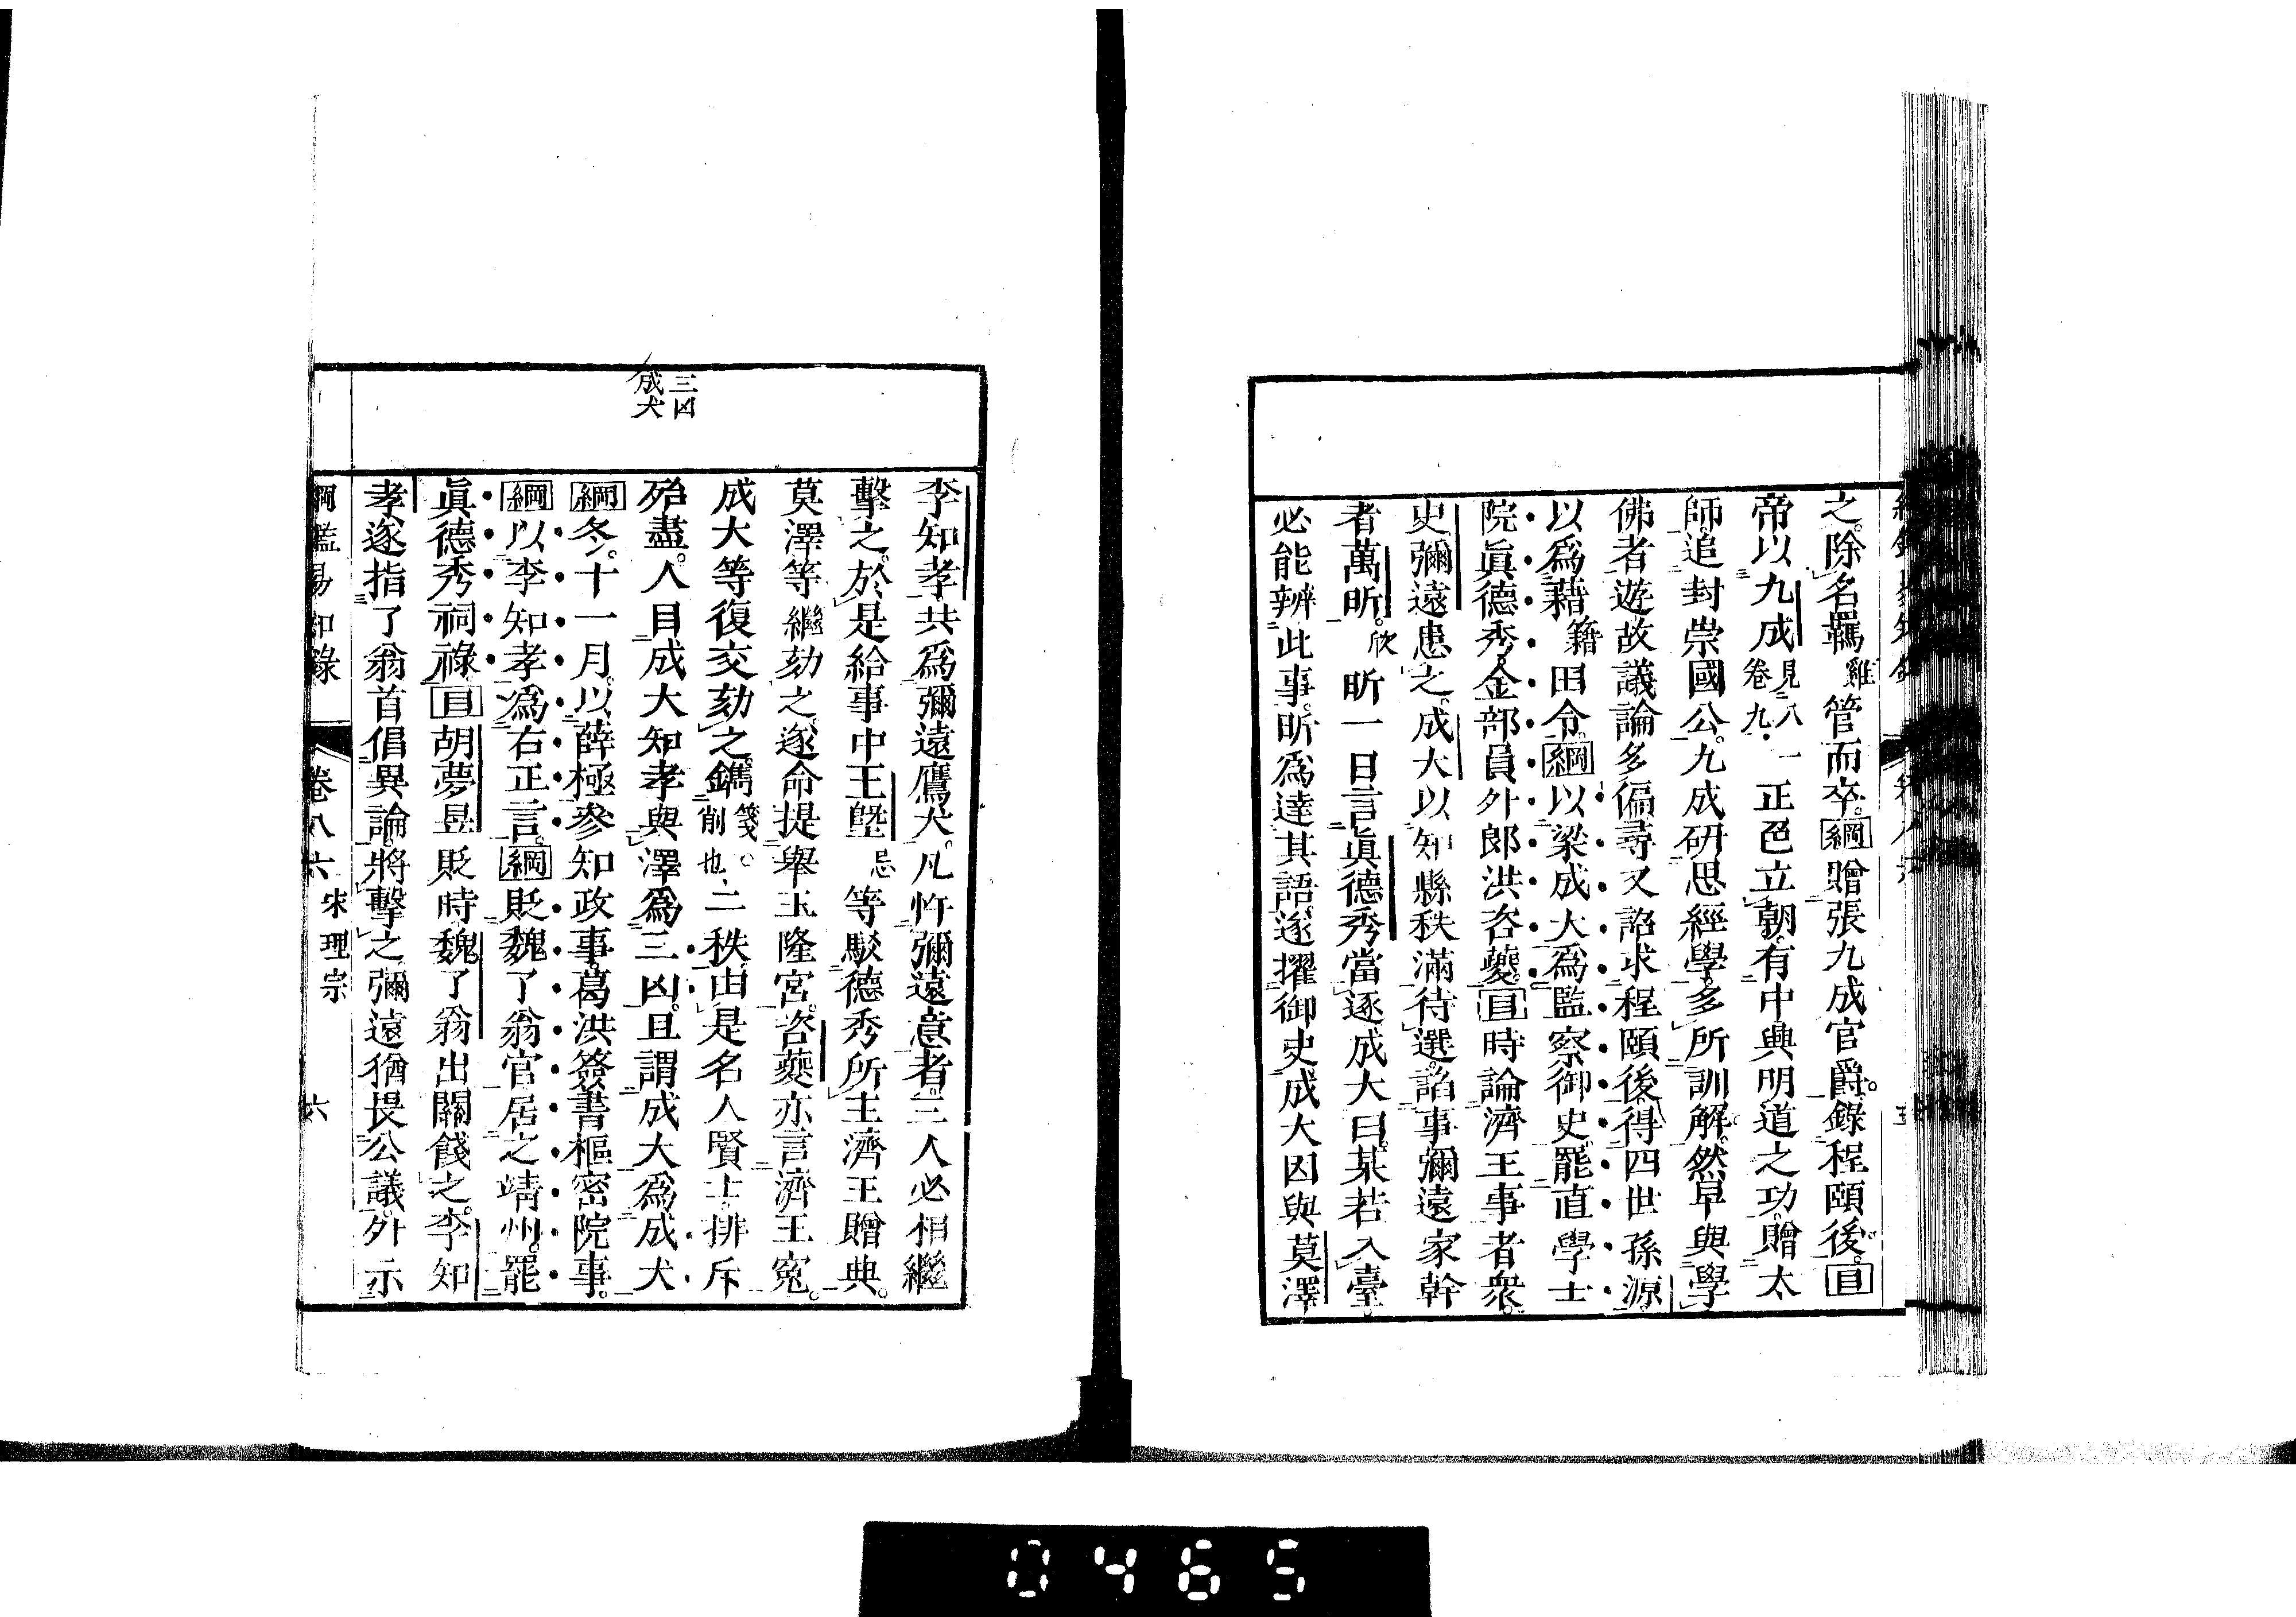 之。除名羈雞管而卒。綱贈張九成官爵。錄程頤後。目
帝以九成見八一卷九正色立朝。有中興明道之功。贈太
師。追封崇國公。九成研思經學。多所訓解。然早與學
佛者遊。故議論多偏。尋又詔求程頤後。得四世孫源
以爲藉籍田令。綱以梁成大爲監察御史。罷直學士
院眞德秀。金部員外郎洪咨夔。目時論濟王事者衆。
史彌遠患之。成大以知縣秩滿待選。諂事彌遠家幹
者萬昕。欣昕一日言眞德秀當逐。成大曰。某若入臺。
必能辨此事。昕爲達其語。遂擢御史。成大因與莫澤
三凶
成犬
李知孝。共爲彌遠鷹犬。凡忤彌遠意者。三人必相繼
擊之。於是給事中王塈忌等駁德秀所主濟王贈典。
莫澤等繼劾之。遂命提舉玉隆宮。咨夔亦言濟王寃。
成大等復交劾之。鐫箋。削也。二秩。由是名人賢士。排斥
殆盡。人目成大知孝與澤爲三凶。且謂成大爲成犬
綱冬。十一月。以薛極參知政事。葛洪簽書樞密院事。
綱以李知孝爲右正言。綱貶魏了翁官。居之靖州。罷
眞德秀祠祿。目胡夢昱貶時。魏了翁出關餞之。李知
孝遂指了翁首倡異論。將擊之。彌遠猶畏公議。外示
綱鑑易知錄 卷八六 宋理宗 六
0465